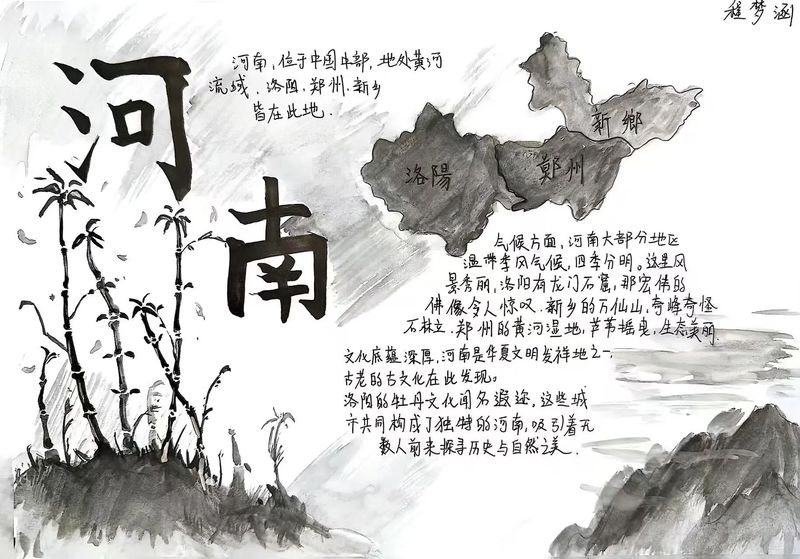 程梦涵
河南
河南,位于中国中部,地处黄河
流域、洛阳、郑州、新乡
皆在此地.
洛陽
鄭州
新鄉
气候方面,河南大部分地区
温带季风气候,四季分明。这里风
景秀丽,洛阳有龙门石窟,那宏伟的
佛像令人惊叹.新乡的万仙山,奇峰奇怪
石林立.郑州的黄河湿地,芦苇摇曳,生态美丽.
文化底蕴深厚,河南是华夏文明发祥地之一,
古老的古文化在此发现。
洛阳的牡丹文化闻名遐迩,这些城
市共同构成了独特的河南,吸引着无
数人前来探寻历史与自然之美.